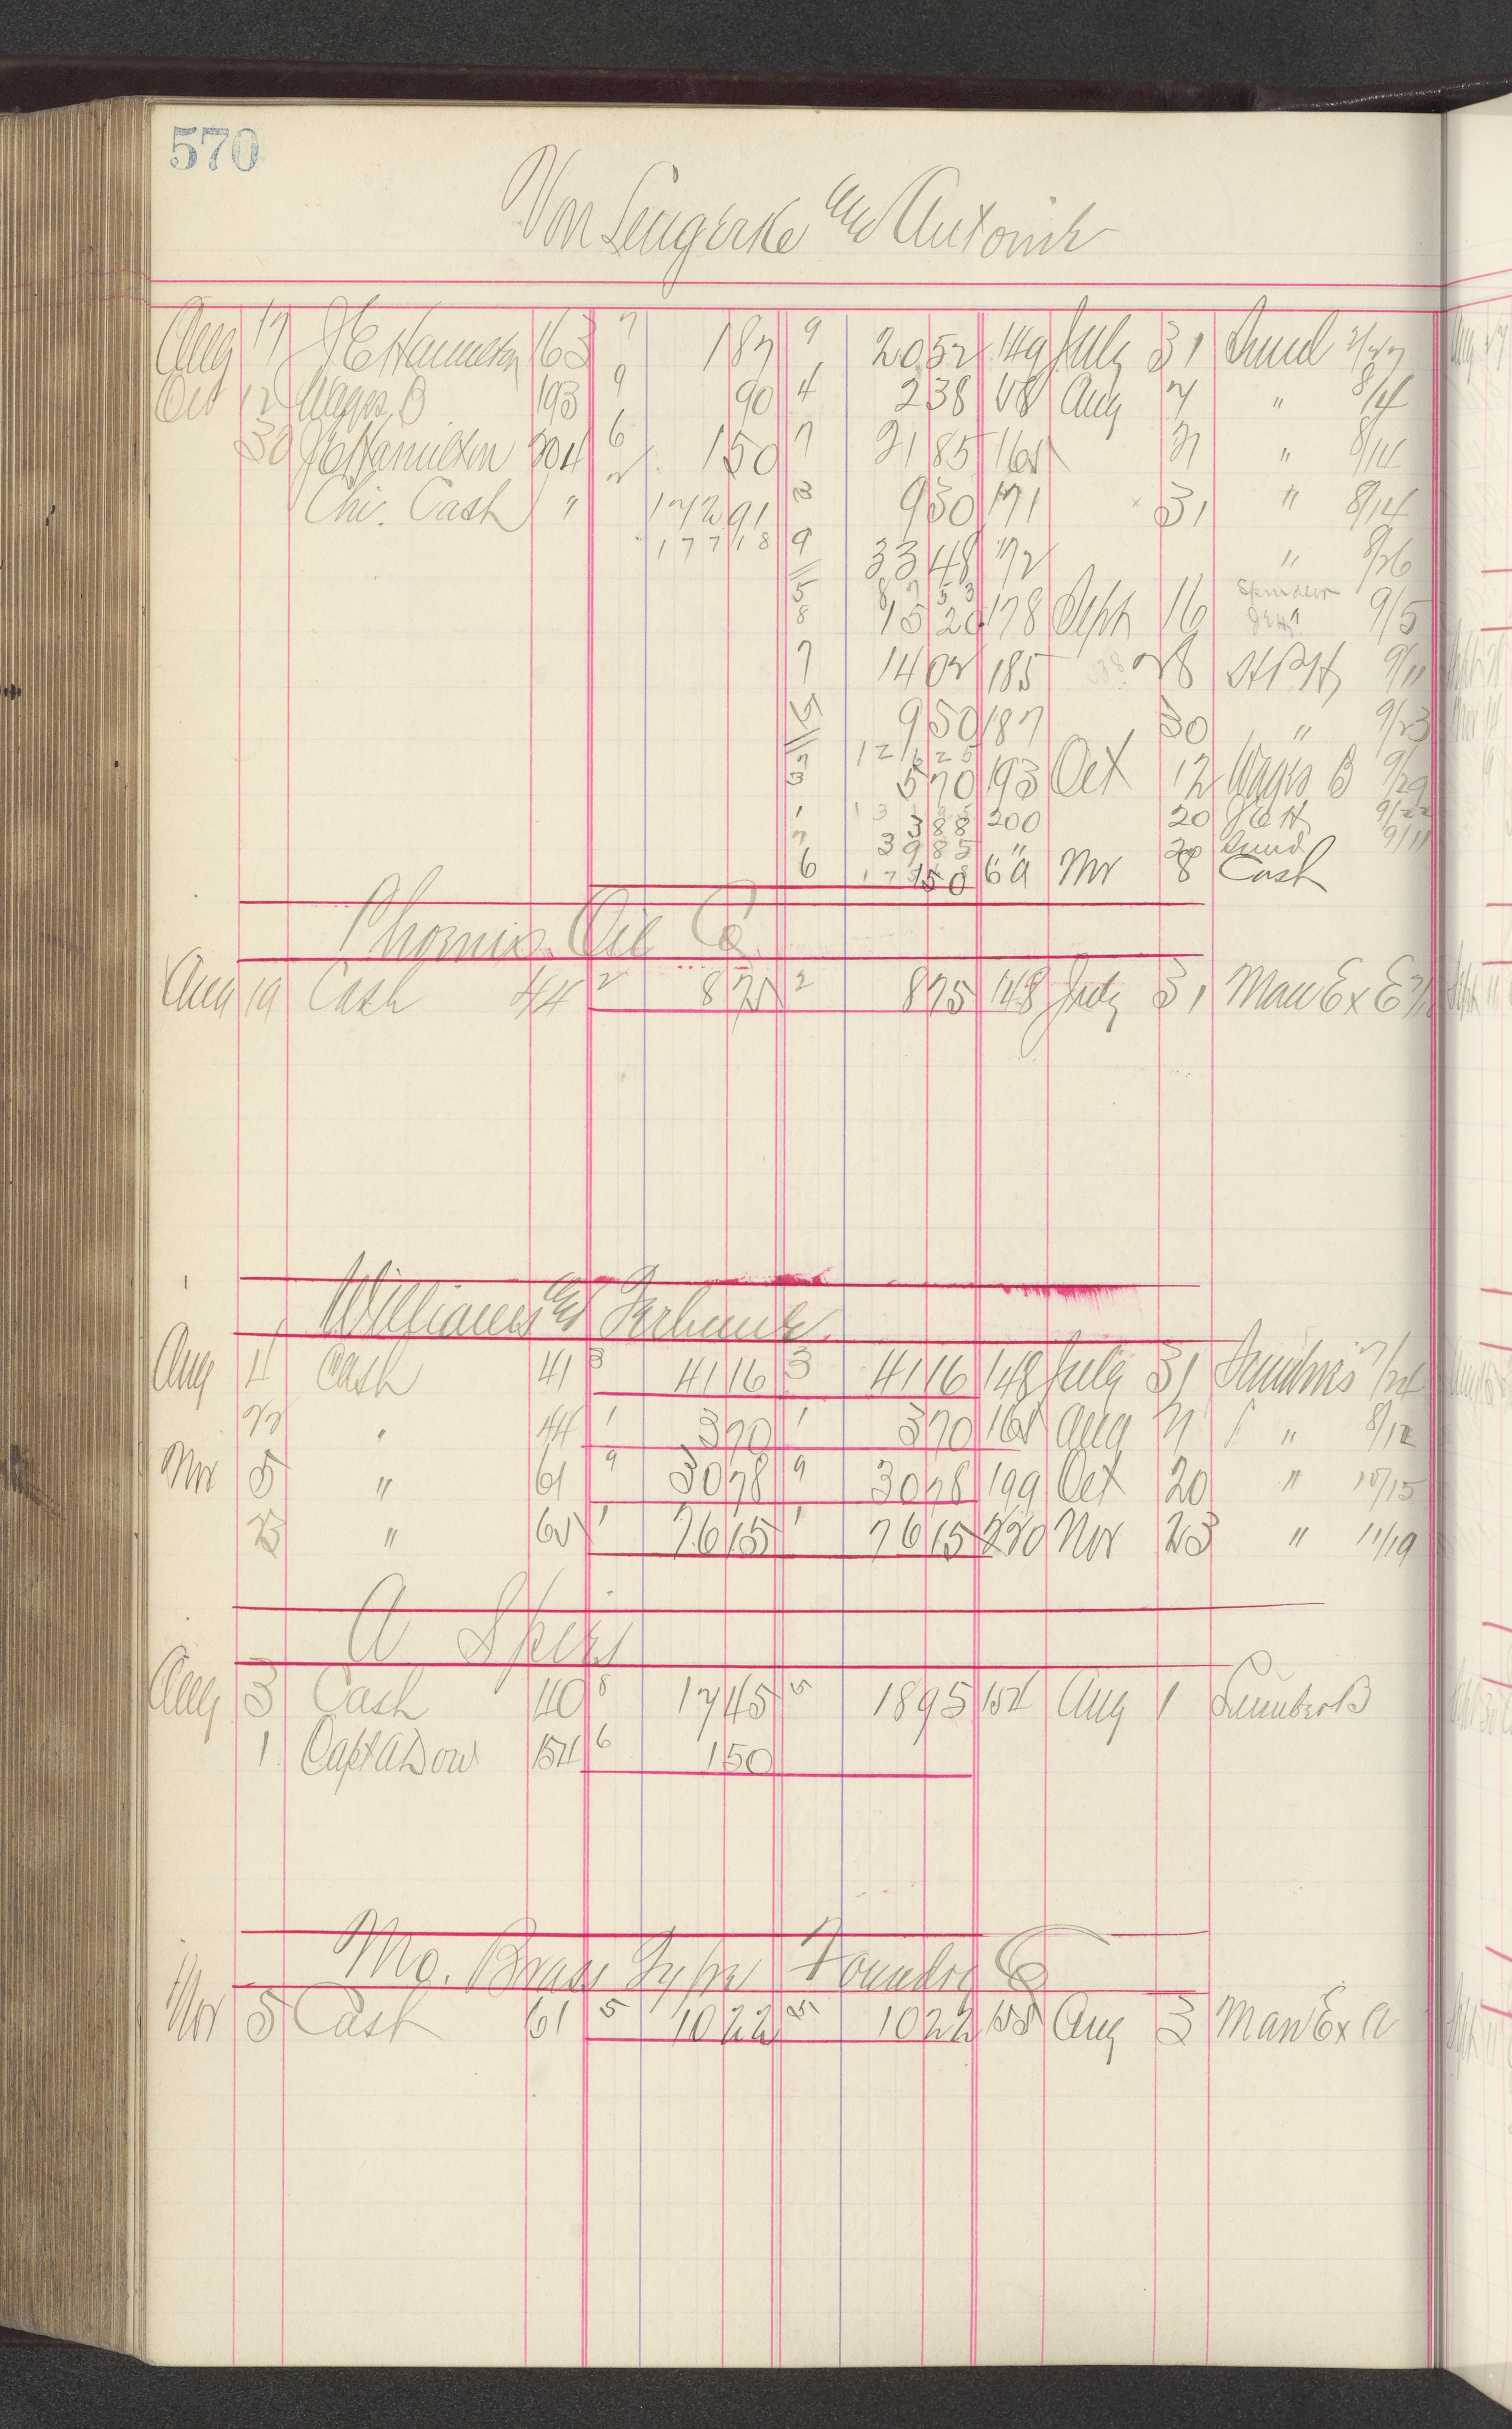 570
Von Lengerke and Antoine
Aug 17 163 7 1 87 9 20 52 149 July 31 Sund
Oct 12 Wages B 193 9 90 4 2 38 158 Aug 7 " 8/4
30 JCHamilton 204 6 1 50 7 21 85 165 21 " 8/14
Chi. Cash " 2 172 91 3 9 50 171 31 " 8/14
177 18 9 33 48 172 " 8/26
5 87 53
8 15 20 178 Sept 16 9/5
7 14 02 185 28 9/11
5 9 50 187 30 " 9/23
12 6 25
3 5 70 193 Oct 12 Wages B 9/29
1 3 88 200 20 JCH 9/22
7 39 85 " 20 Sund 9/11
6 1 50 69 Nov 8 Cash
Phoenix Oil Co
Aug 19 Cash 44 2 8 75 2 8 75 148 July 31 Man Ex E
Williams and
Aug 4 Cash 41 3 41 16 3 41 16 148 July 31 Sundries
" 44 1 3 70 1 3 70 165 Aug 21 " 8/12
Nov 5 " 61 9 30 78 9 30 78 199 Oct 20 " 10/15
" 65 1 76 15 1 76 15 220 Nov 23 " 11/19
A Spies
Aug 3 Cash 40 8 17 45 5 18 95 154 Aug 1 Lumber B
1 Capt A Dow 154 6 1 50
Mo. Brass Type Foundry Co
Nov 5 Cash 61 5 10 22 5 10 22 155 Aug 3 Man Ex A